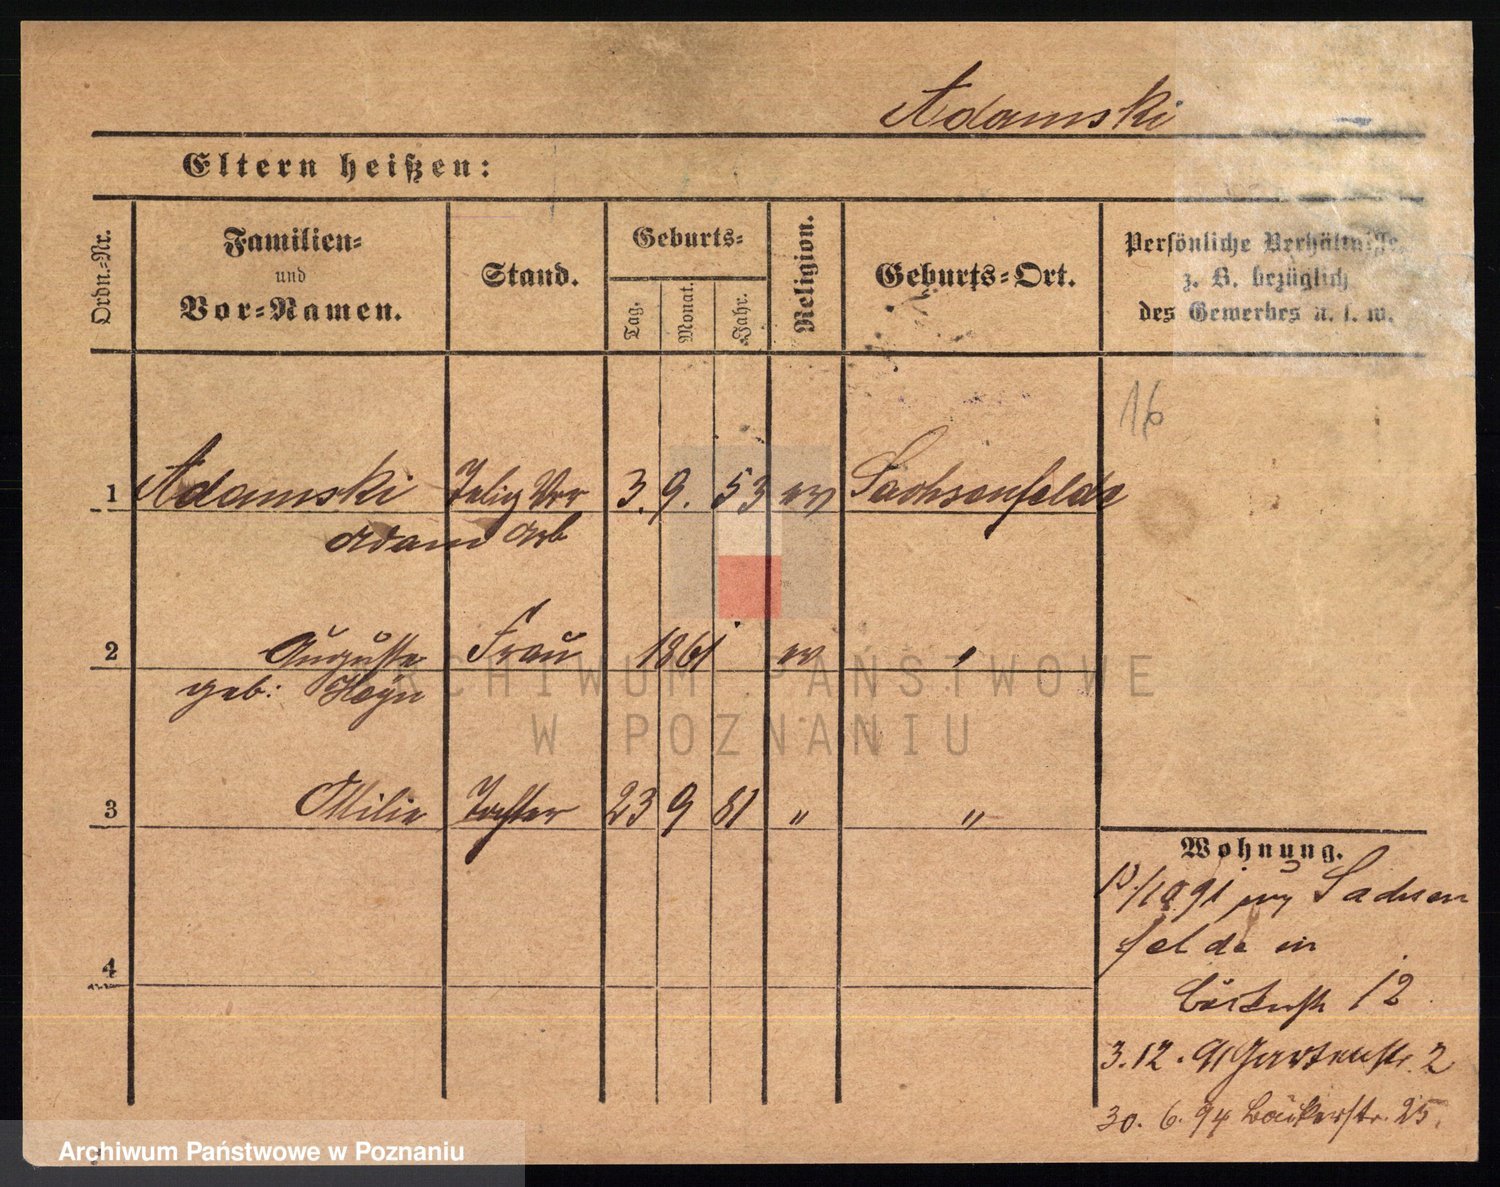 Adamski
Eltern heißen:
Ordn.-Nr.
Familien-
und
Vor-Namen.
Stand.
Geburts-
Tag.
Monat.
Jahr.
Religion.
Geburts-Ort.
Persönliche Verhältnisse,
z. B. bezüglich
des Gewerbes u. s. w.
16
1 Adamski 3. 9. 53 ev Sachsenfelde
Adam Arb
2 Auguste Frau 1861 ev "
geb: Heyn
3 Ottilie Tochter 23 9 81 " "
4
Wohnung.
1091 Sachsen
felde in
12
3.12.91 Gartenstr. 2
30. 6. 94 Bäckerstr. 25.
ARCHIWUM PAŃSTWOWE
W POZNANIU
Archiwum Państwowe w Poznaniu